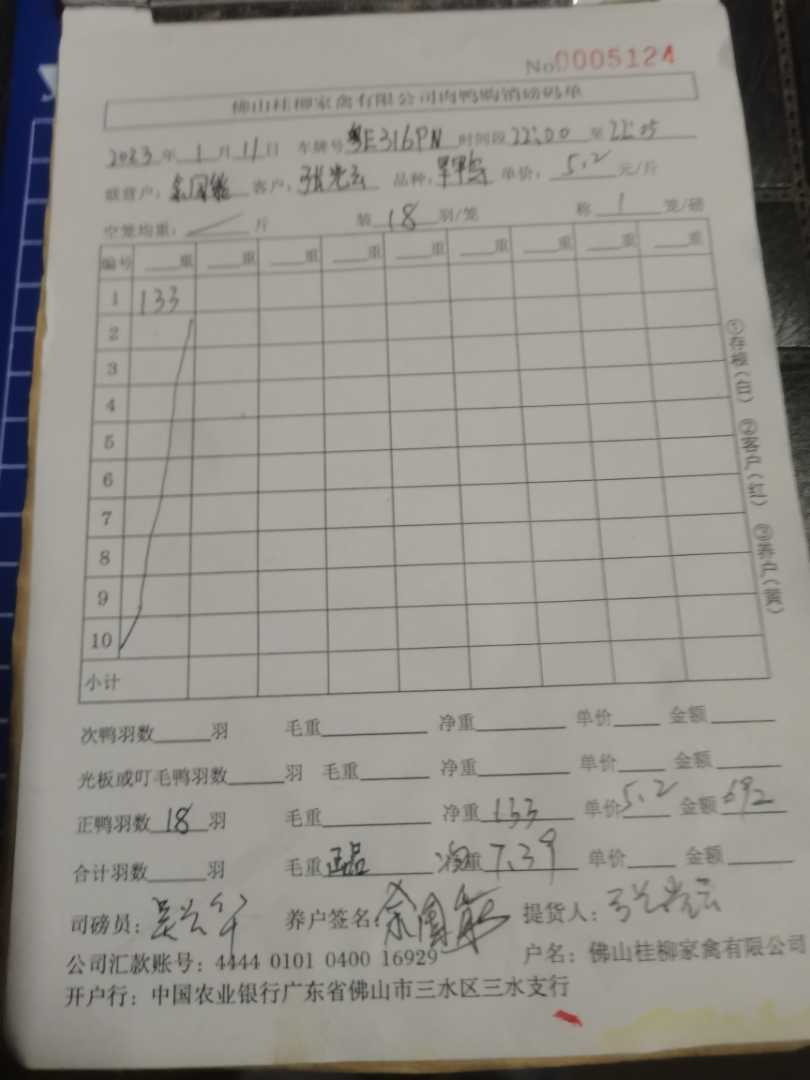 No 0005124
佛山桂柳家禽有限公司肉鸭购销磅码单
2023年 1月 11日 车牌号 粤E316PN 时间段 22:00 至 22:05
客户: 张光云 品种: 单价: 5.2 元/斤
空笼均重: 斤 装 18 羽/笼 称 1 笼/磅
编号 重 重 重 重 重 重 重 重 重
1 133
2
3
4
5
6
7
8
9
10
小计
①存根(白) ②客户(红) ③养户(黄)
次鸭羽数 羽 毛重 净重 单价 金额
光板或叮毛鸭羽数 羽 毛重 净重 单价 金额
正鸭羽数 18 羽 毛重 净重 133 单价 5.2 金额 692
合计羽数 羽 毛重 重 7.39 单价 金额
司磅员: 养户签名: 余国 提货人: 张光云
公司汇款账号: 4444 0101 0400 16929 户名: 佛山桂柳家禽有限公司
开户行: 中国农业银行广东省佛山市三水区三水支行